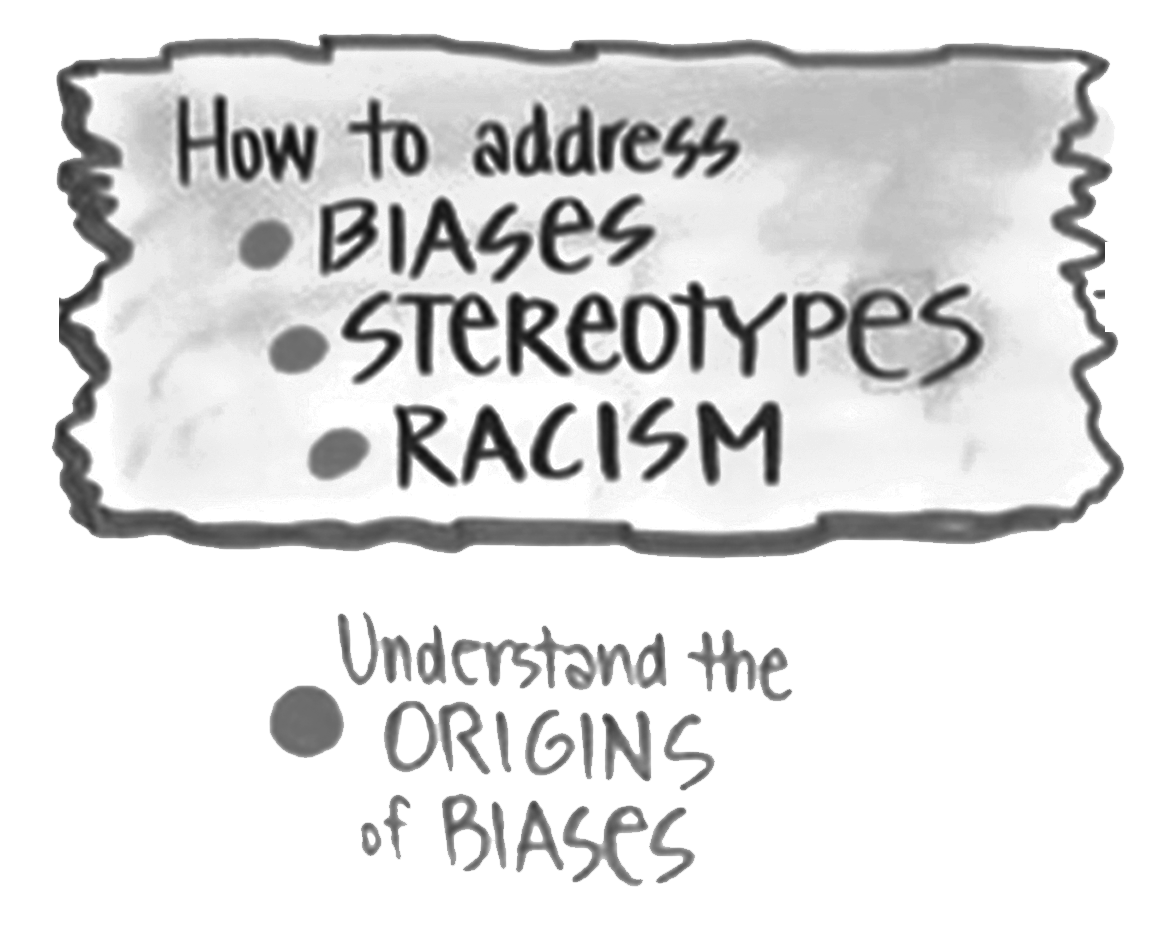 How to address
BIASes
STeReOTYPeS
RACISM
Understand the
ORIGINS
of BIASes